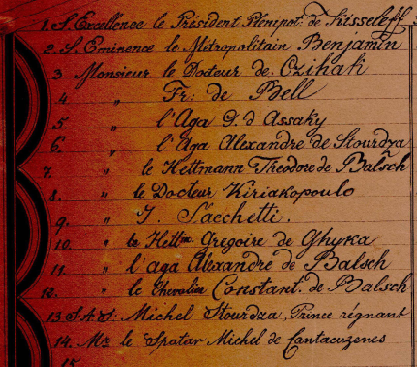 1. S. Excellence le Président Plénipot. de Kisseleff
2. S. Eminence le Métropolitain Benjamin
3 Monsieur le Docteur de Czihak
4 " Fr. de Bell
5 " l'Aga D. d'Assaky
6. " l'Aga Alexandre de Stourdza
7. " le Hettmann Théodore de Balsch
8. " le Docteur Kiriakopoulo
9. " J. Sacchetti.
10. " le Hettm. Grégoire de Ghyka
11. " l'aga Alexandre de Balsch
12. " le Chevalier Constant. de Balsch
13. S. A. S. Michel Stourdza, Prince régnant
14. Mr. le Spatar Michel de Cantacuzenos
15